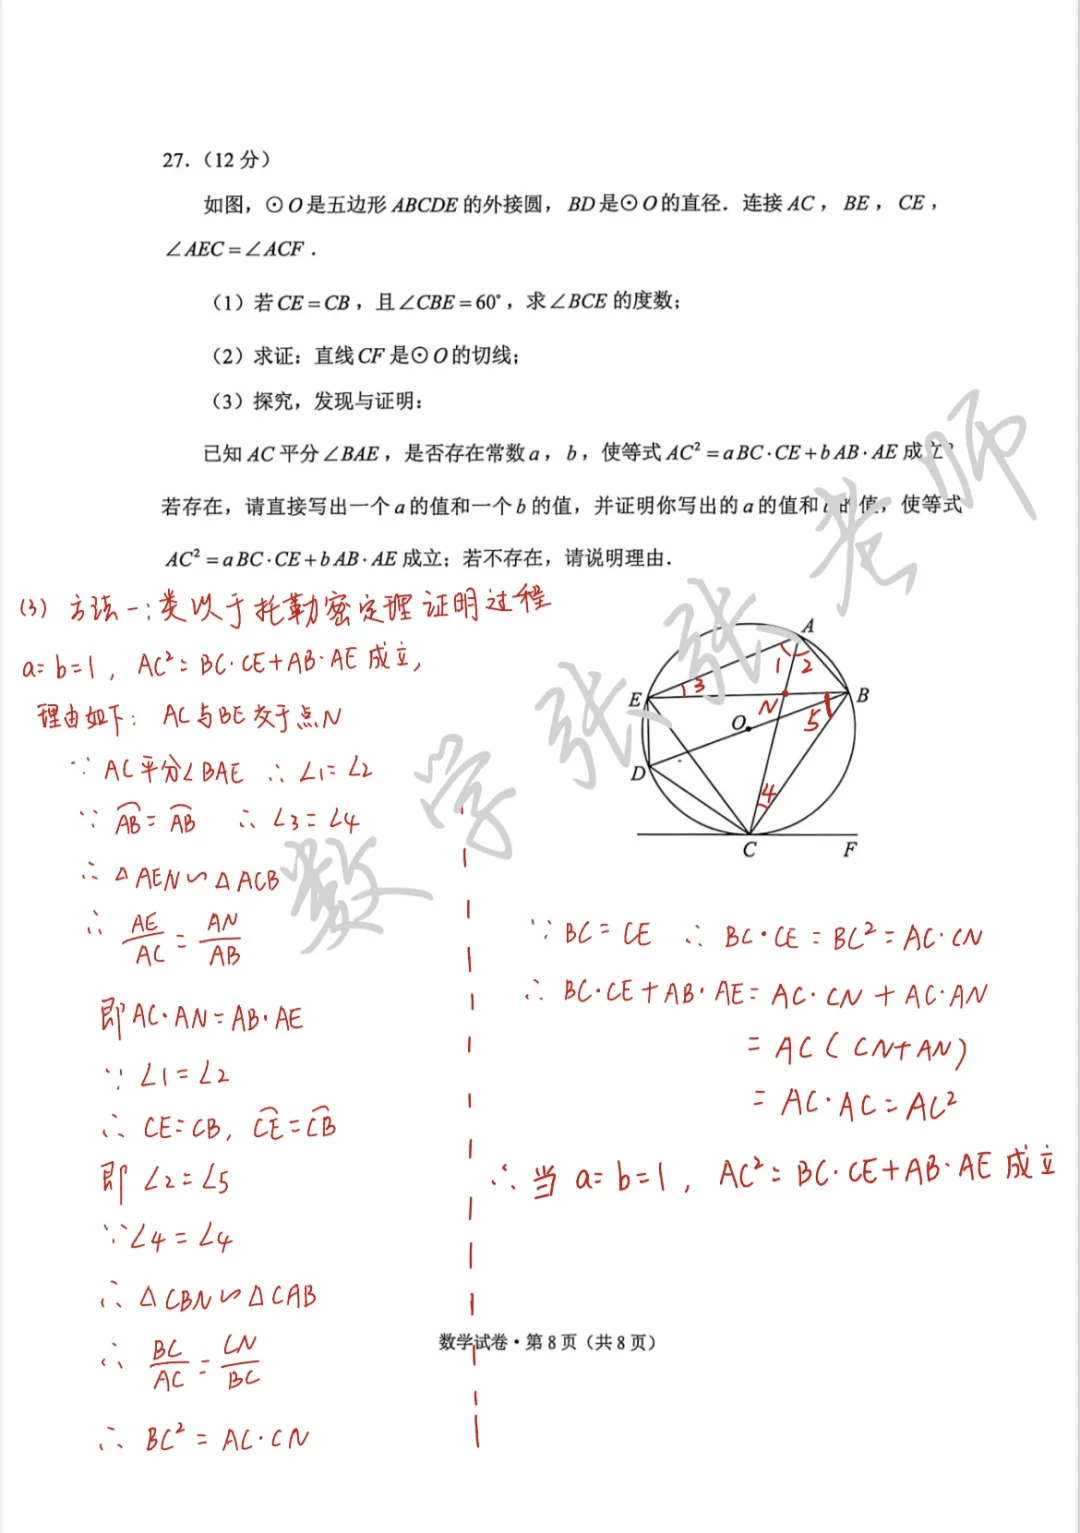 27.（12 分）
如图，⊙O是五边形 ABCDE 的外接圆，BD是⊙O的直径．连接 AC，BE，CE，
∠AEC=∠ACF．
（1）若CE=CB，且∠CBE=60°，求∠BCE 的度数；
（2）求证：直线CF 是⊙O的切线；
（3）探究，发现与证明：
已知 AC 平分∠BAE，是否存在常数a，b，使等式 AC²=aBC·CE+bAB·AE 成立？
若存在，请直接写出一个 a 的值和一个 b 的值，并证明你写出的 a 的值和 b 的值，使等式
AC²=aBC·CE+bAB·AE 成立；若不存在，请说明理由．
(3) 方法一：类以于托勒密定理证明过程
a=b=1, AC²=BC·CE+AB·AE 成立,
理由如下: AC与BE交于点N
∵ AC平分∠BAE ∴ ∠1=∠2
∵ AB⌒=AB⌒ ∴ ∠3=∠4
∴ △AEN∽△ACB
∴ AE/AC = AN/AB
即 AC·AN=AB·AE
∵ ∠1=∠2
∴ CE=CB, CE⌒=CB⌒
即 ∠2=∠5
∵ ∠4=∠4
∴ △CBN∽△CAB
∴ BC/AC = CN/BC
∴ BC²=AC·CN
A
1 2
E 3 N B
O 5
D
4
C F
∵ BC=CE ∴ BC·CE=BC²=AC·CN
∴ BC·CE+AB·AE=AC·CN+AC·AN
=AC(CN+AN)
=AC·AC=AC²
∴ 当 a=b=1, AC²=BC·CE+AB·AE 成立
数学试卷·第 8 页（共 8 页）
数学张张老师